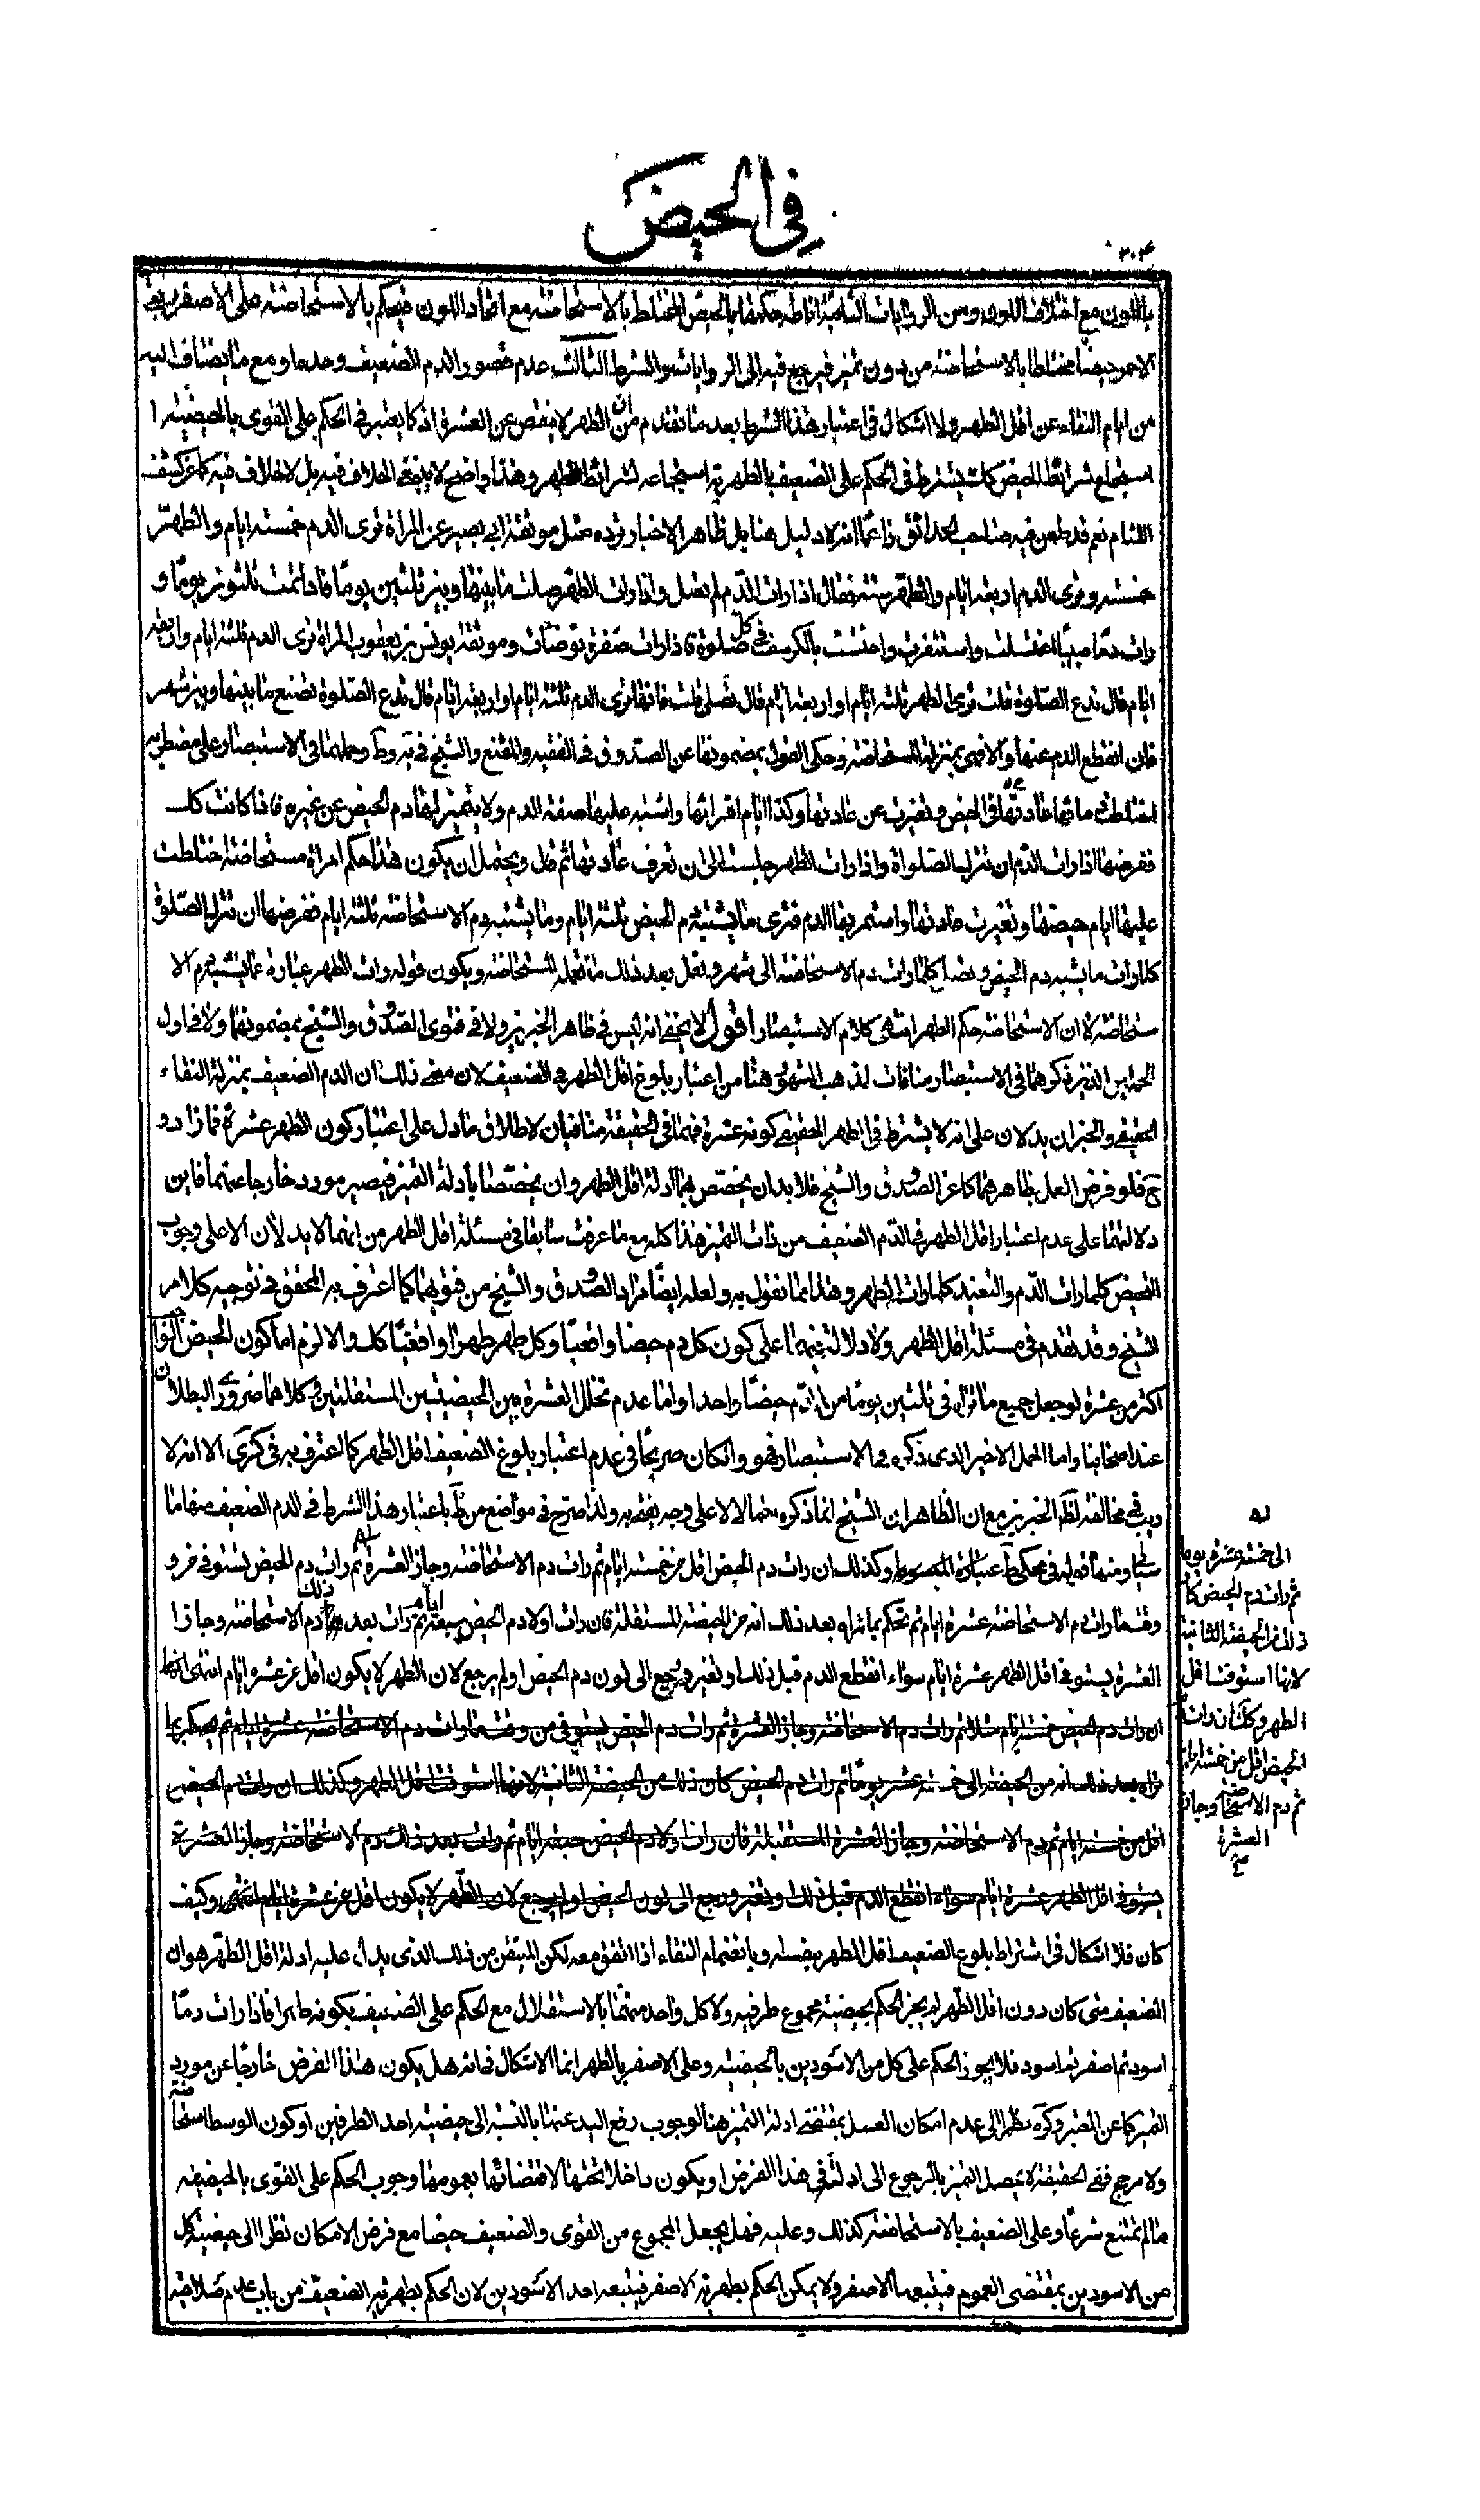 في الحيض
٣٠٤
باللون مع اختلاف اللون ومن الروايات الثانية اناطة حكمها بالحيض المختلط بالاستحاضة مع اتحاد اللون فيحكم بالاستحاضة على الاصفر يبقى
الاحمر حيضا مختلطا بالاستحاضة من دون تميز فيرجع فيه الى الروايات والشرط الثالث عدم قصور الدم الضعيف وحده او مع ما يضاف اليه
من ايام النقاء عن اقل الطهر ولا اشكال في اعتبار هذا الشرط بعد ما تقدم من ان الطهر لا ينقص عن العشرة اذ كما يعتبر في الحكم على القوى بالحيضية
استجماع شرائط الحيض كك يشترط في الحكم على الضعيف بالطهرية استجماعه لشرائط الطهر وهذا واضح لا ينبغي الخلاف فيه بل لا خلاف فيه كما عن كشف
اللثام نعم قد طعن فيه صاحب الحدائق زاعما انه لا دليل هنا بل ظاهر الاخبار ترده مثل موثقة ابي بصير عن المراة ترى الدم خمسة ايام والطهر
خمسة وترى الدم اربعة ايام والطهر ستة فقال اذا رات الدم لم تصل واذا رات الطهر صلت ما بينها وبين ثلثين يوما فاذا تمت ثلثون يوما و
رات دما صبيبا اغتسلت واستثفرت واحتشت بالكرسف في كل صلوة فاذا رات صفرة توضات وموثقة يونس بن يعقوب المراة ترى الدم ثلثة ايام واربعة
ايام قال تدع الصلوة قلت ترى الطهر ثلثة ايام او اربعة ايام قال تصلى قلت فانها ترى الدم ثلثة ايام او اربعة ايام قال تدع الصلوة تصنع ما بينها وبين شهر
فان انقطع الدم عنها والا فهى بمنزلة المستحاضة وحكى القول بمضمونها عن الصدوق في الفقيه والمقنع والشيخ في يه وط وحملهما في الاستبصار على مضطربة
اختلطت عادتها في الحيض وتغيرت عن عادتها وكذا ايام اقرائها واشتبه عليها صفة الدم ولا يتميز لها دم الحيض عن غيره فاذا كانت كك
ففرضها اذا رات الدم ان تترك الصلواة واذا رات الطهر صلت الى ان تعرف عادتها ثم قال ويحتمل ان يكون هذا حكم امراة مستحاضة اختلطت
عليها ايام حيضها وتغيرت عادتها واستمر بها الدم فترى ما يشتبه دم الحيض ثلثة ايام وما يشتبه دم الاستحاضة ثلثة ايام ففرضها ان تترك الصلوة
كلما رات ما يشبه دم الحيض وتصلى كلما رات دم الاستحاضة الى شهر وتعمل بعد ذلك ما تعمله المستحاضة ويكون قوله رات الطهر عبارة عما يشبه دم الا
ستحاضة لان الاستحاضة حكم الطهر انتهى كلام الاستبصار اقول لا يخفى انه ليس في ظاهر الخبرين ولا في فتوى الصدوق والشيخ بمضمونها ولا في اول
الحملين الذين ذكرهما في الاستبصار منافات لمذهب المشهور هنا من اعتبار بلوغ اقل الطهر في الضعيف لان معنى ذلك ان الدم الضعيف بمنزلة النقاء
الحقيقي والخبران يدلان على انه لا يشترط في الطهر الحقيقي كونه عشرة فهما في الحقيقة منافيان لاطلاق ما دل على اعتبار كون الطهر عشرة فما زاد و
ح فلو فرض العمل بظاهرهما كما عن الصدوق والشيخ فلا بد ان يخصص بهما ادلة اقل الطهر وان يخصصا بادلة التميز فيصير مورده خارجا عنهما فاين
دلالتهما على عدم اعتبار اقل الطهر في الدم الضعيف من ذات التميز هذا كله مع ما عرفت سابقا في مسئلة اقل الطهر من انهما لا يدلان الا على وجوب
التحيض كلما رات الدم والتعبد كلما رات الطهر وهذا مما نقول به ولعله ايضا مراد الصدوق والشيخ من فتويهما كما اعترف به المحقق في توجيه كلام
الشيخ وقد تقدم في مسئلة اقل الطهر ولا دلالة فيهما على كون كل دم حيضا واقعيا وكل طهر طهرا واقعيا كك والا لزم اما كون الحيض الواحد
اكثر من عشرة لو جعل جميع ما تراه في ثلثين يوما من الدم حيضا واحدا واما عدم تخلل العشرة بين الحيضتين المستقلتين وكلاهما ضروري البطلان
عند اصحابنا واما الحمل الاخير الذى ذكره في الاستبصار فهو وانكان صريحا في عدم اعتبار بلوغ الضعيف اقل الطهر كما اعترف به في كرى الا انه لا
ريب في مخالفته لظ الخبرين مع ان الظاهر ان الشيخ انما ذكره احتمالا لا على وجه يفتى به ولذا صرح في مواضع من ط باعتبار هذا الشرط في الدم الضعيف منها ما
سياتي ومنها قوله في محكى ط عبارة المبسوط وكذلك ان رات دم الحيض اقل من خمسة ايام ثم رات دم الاستحاضة وجاز العشرة ثم رات دم الحيض تستوفي من و
وقت ما رات دم الاستحاضة عشرة ايام ثم تحكم بما تراه بعد ذلك انه من الحيضة المستقلة فان رات اولا دم الحيض سبعة ايام ثم رات بعد ذلك دم الاستحاضة وجازا
العشرة يستوفي اقل الطهر عشرة ايام سواء انقطع الدم قبل ذلك او تغير ورجع الى لون دم الحيض او لم يرجع لان الطهر لا يكون اقل من عشرة ايام انتهى
ان رات دم الحيض خمسة ايام مثلا ثم رات دم الاستحاضة وجاز العشرة ثم رات دم الحيض يستوفي من وقت ما رات دم الاستحاضة عشرة ايام ثم يحكم بما
تراه بعد ذلك انه من الحيضة الى خمسة عشر يوما ثم رات دم الحيض كان ذلك من الحيضة الثانية لانها استوفت اقل الطهر وكذلك ان رات دم الحيض
اقل من خمسة ايام ثم دم الاستحاضة وجاز العشرة المستقبلة فان رات اولا دم الحيض سبعة ايام ثم رات بعد ذلك دم الاستحاضة وجاز العشرة
يستوفى اقل الطهر عشرة ايام سواء انقطع الدم قبل ذلك او تغير ورجع الى لون الحيض او لم يرجع لان الطهر لا يكون اقل من عشرة ايام انتهى وكيف
كان فلا اشكال في اشتراط بلوغ الضعيف اقل الطهر بنفسه او بانضمام النقاء اذا اتفق معه لكن المتيقن من ذلك الذى يدل عليه ادلة اقل الطهر هو ان
الضعيف متى كان دون اقل الطهر لم يجز الحكم بحيضية مجموع طرفيه ولا كل واحد منهما بالاستقلال مع الحكم على الضعيف بكونه طهرا فاذا رات دما
اسود ثم اصفر ثم اسود فلا يجوز الحكم على كل من الاسودين بالحيضية وعلى الاصفر بالطهر انما الاشكال في انه هل يكون هذا الفرض خارجا عن مورد
التميز كما عن المعتبر وكره نظرا الى عدم امكان العمل بمقتضى ادلة التميز هنا لوجوب رفع اليد عنها بالنسبة الى حيضية احد الطرفين او كون الوسط استحاضة
ولا مرجح ففي الحقيقة لا يحصل التميز بالرجوع الى ادلته في هذا الفرض او يكون داخلا تحتها لاقتضائها بعمومها وجوب الحكم على القوى بالحيضية
ما لم يمتنع شرعا وعلى الضعيف بالاستحاضة كذلك وعليه فهل يجعل المجموع من القوى والضعيف حيضا مع فرض الامكان نظرا الى حيضية كل
من الاسودين بمقتضى العموم فيتبعهما الاصفر ولا يمكن الحكم بطهرية الاصفر فيتبعه احد الاسودين لان الحكم بطهرية الضعيف من باب عدم صلاحية
الى خمسة عشرة يوما
ثم رات دم الحيض كان
ذلك من الحيضة الثانية
لانها استوفت اقل
الطهر وكك ان رات
الحيض اقل من خمسة ايام
ثم دم الاستحاضة وجاز
العشرة